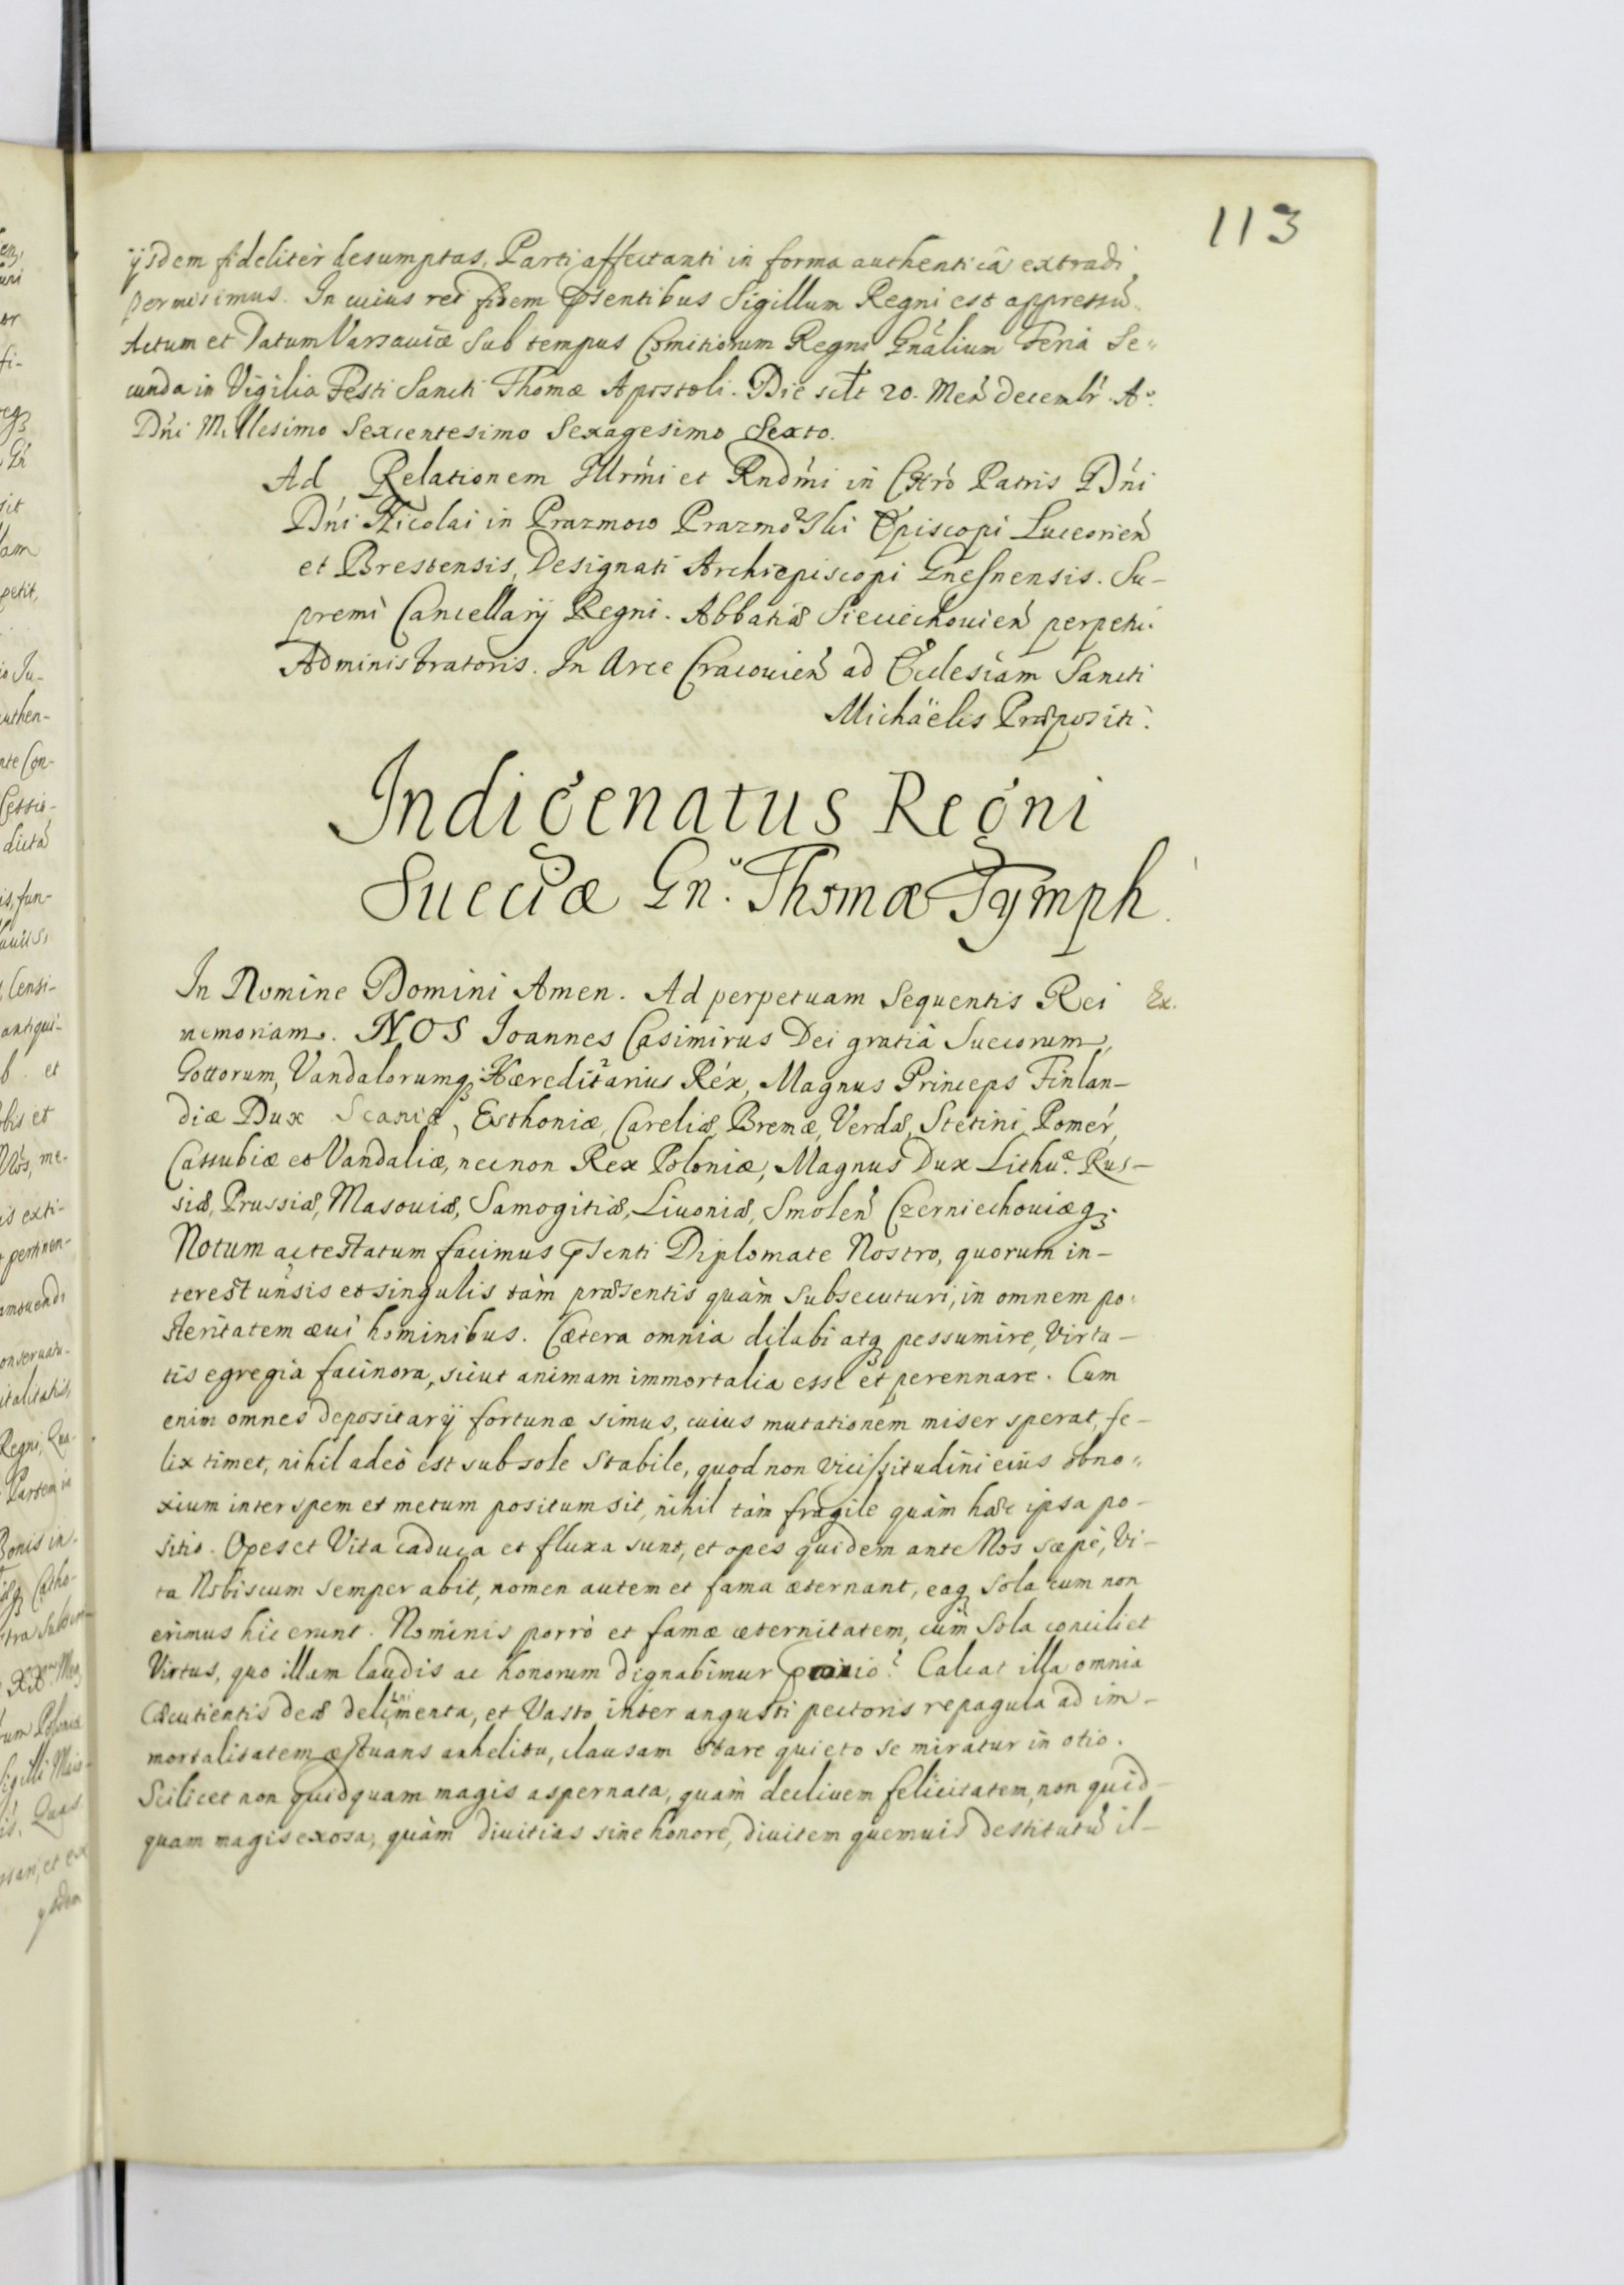 113
ijsdem fideliter desumptas, Parti affectanti in forma authenticâ extradi
permisimus. In cuius rei fidem pñsentibus Sigillum Regni est appressũ.
Actum et Datum Varsauiæ Sub tempus Comitiorum Regni Gñalium Feria Se„
cunda in Vigilia Festi Sancti Thomæ Apostoli. Die scilt 20. Meñ Decembr̃. Aº.
Dñi Millesimo Sexcentesimo Sexagesimo Sexto.
Ad Relationem Illrm̃i et Rndm̃i in Chr̃o Patris Dñi
Dñi Nicolai in Prazmow Prazmowski Episcopi Luceorieñ
et Brestensis, Designati Archiepiscopi Gnesnensis. Su-
premi Cancellarij Regni. Abbatiæ Siecechouieñ perpetui
Administratoris. In Arce Cracouieñ ad Ecclesiam Sancti
Michäelis Præpositi.
Indigenatus Regni
Sueciæ Gñ. Thomæ Tymph.
In Nomine Domini Amen. Ad perpetuam Sequentis Rei Ex.
memoriam. NOS Ioannes Casimirus Dei gratiâ Suecorum,
Gottorum, Vandalorumq; Hæreditarius Rex, Magnus Princeps Finlan-
diæ Dux Scaniæ, Esthoniæ, Careliæ, Bremæ, Verdæ, Stetini, Pomer̃,
Cassubiæ et Vandaliæ, necnon Rex Poloniæ, Magnus Dux Lithuæ. Rus-
siæ, Prussiæ, Masouiæ, Samogitiæ, Liuoniæ, Smoleñ Czerniechouiæq;
Notum ac testatum facimus pñsenti Diplomate Nostro, quorum in-
terest uñsis et singulis tàm præsentis quàm subsecuturi, in omnem po„
steritatem æui hominibus. Cætera omnia dilabi atq; pessumire, Virtu-
tis egregia facinora, sicut animam immortalia esse et perennare. Cum
enim omnes depositarij fortunæ simus, cuius mutationem miser sperat, fe-
lix timet, nihil adeò est sub sole Stabile, quod non vicissitudini eius obno„
xium inter spem et metum positum sit, nihil tàm fragile quàm hæc ipsa po-
sitio. Opes et Vita caduca et fluxa sunt, et opes quidem ante Nos sæpè, Vi-
ta Nobiscum semper abit, nomen autem et fama æternant, eaq; sola cum non
erimus hic erunt. Nominis porrò et famæ æternitatem, cùm sola conciliet
Virtus, quo illam laudis ac honorum dignabimur? Calcat illa omnia
Cæcutientis deæ delinimenta, et Vasto inter angusti pectoris repagula ad im-
mortalitatem æstuans anhelitu, clausam stare quieto se miratur in otio.
Scilicet non quidquam magis aspernata, quàm decliuem felicitatem, non quid-
quam magis exosa, quàm diuitias sine honore, diuitem quemuis destitutũ il-